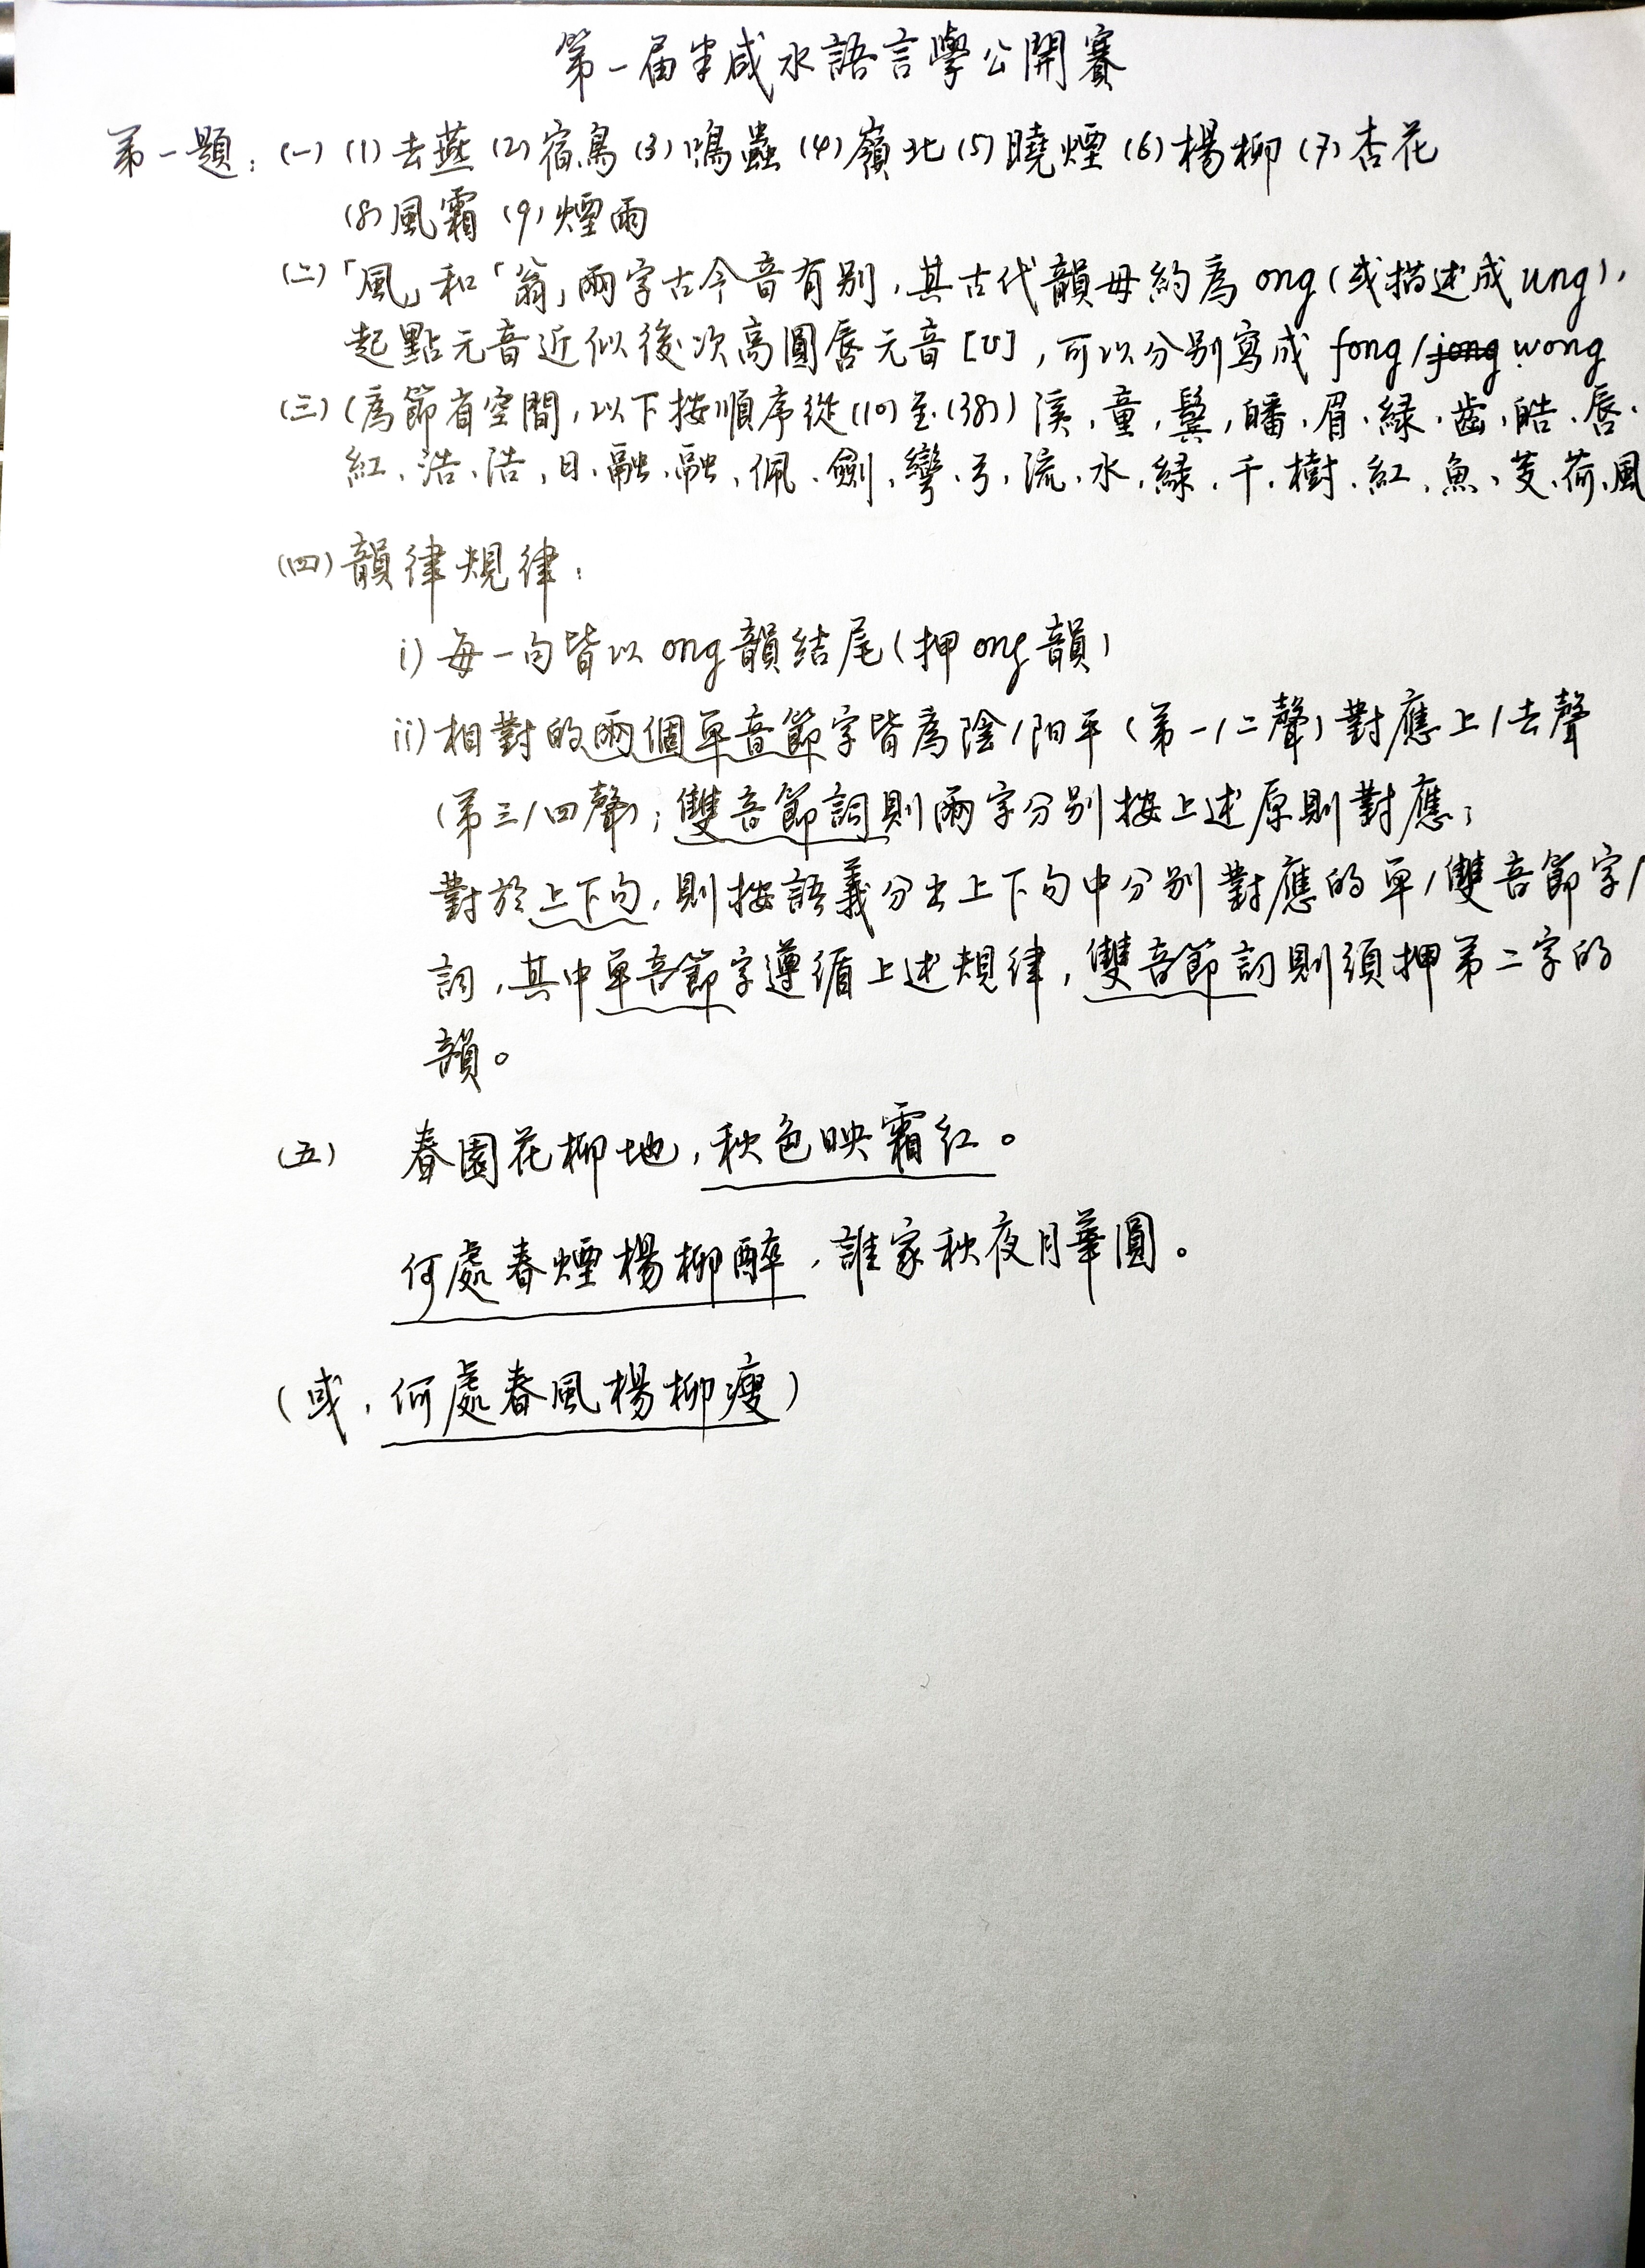 第一屆半咸水語言學公開賽
第一題：(一) (1) 去燕 (2) 宿鳥 (3) 鳴蟲 (4) 嶺北 (5) 曉煙 (6) 楊柳 (7) 杏花
(8) 風霜 (9) 煙雨
(二)「風」和「翁」兩字古今音有別，其古代韻母約為 ong (或描述成 ung)，
起點元音近似後次高圓唇元音 [ʊ]，可以分別寫成 fong / jong wong
(三) (為節省空間，以下按順序從(10)至(38)) 溪，童，鬢，皤，眉，綠，齒，皓，唇，
紅，浩，浩，日，融，融，佩，劍，彎，弓，流，水，綠，千，樹，紅，魚，芰，荷，風
(四) 韻律規律：
i) 每一句皆以 ong 韻結尾 (押 ong 韻)
ii) 相對的兩個單音節字皆為陰/阳平 (第一/二聲) 對應上/去聲
(第三/四聲)；雙音節詞則兩字分別按上述原則對應；
對於上下句，則按語義分出上下句中分別對應的單/雙音節字/
詞，其中單音節字遵循上述規律，雙音節詞則須押第二字的
韻。
(五) 春園花柳地，秋色映霜紅。
何處春煙楊柳醉，誰家秋夜月華圓。
(或，何處春風楊柳瘦)